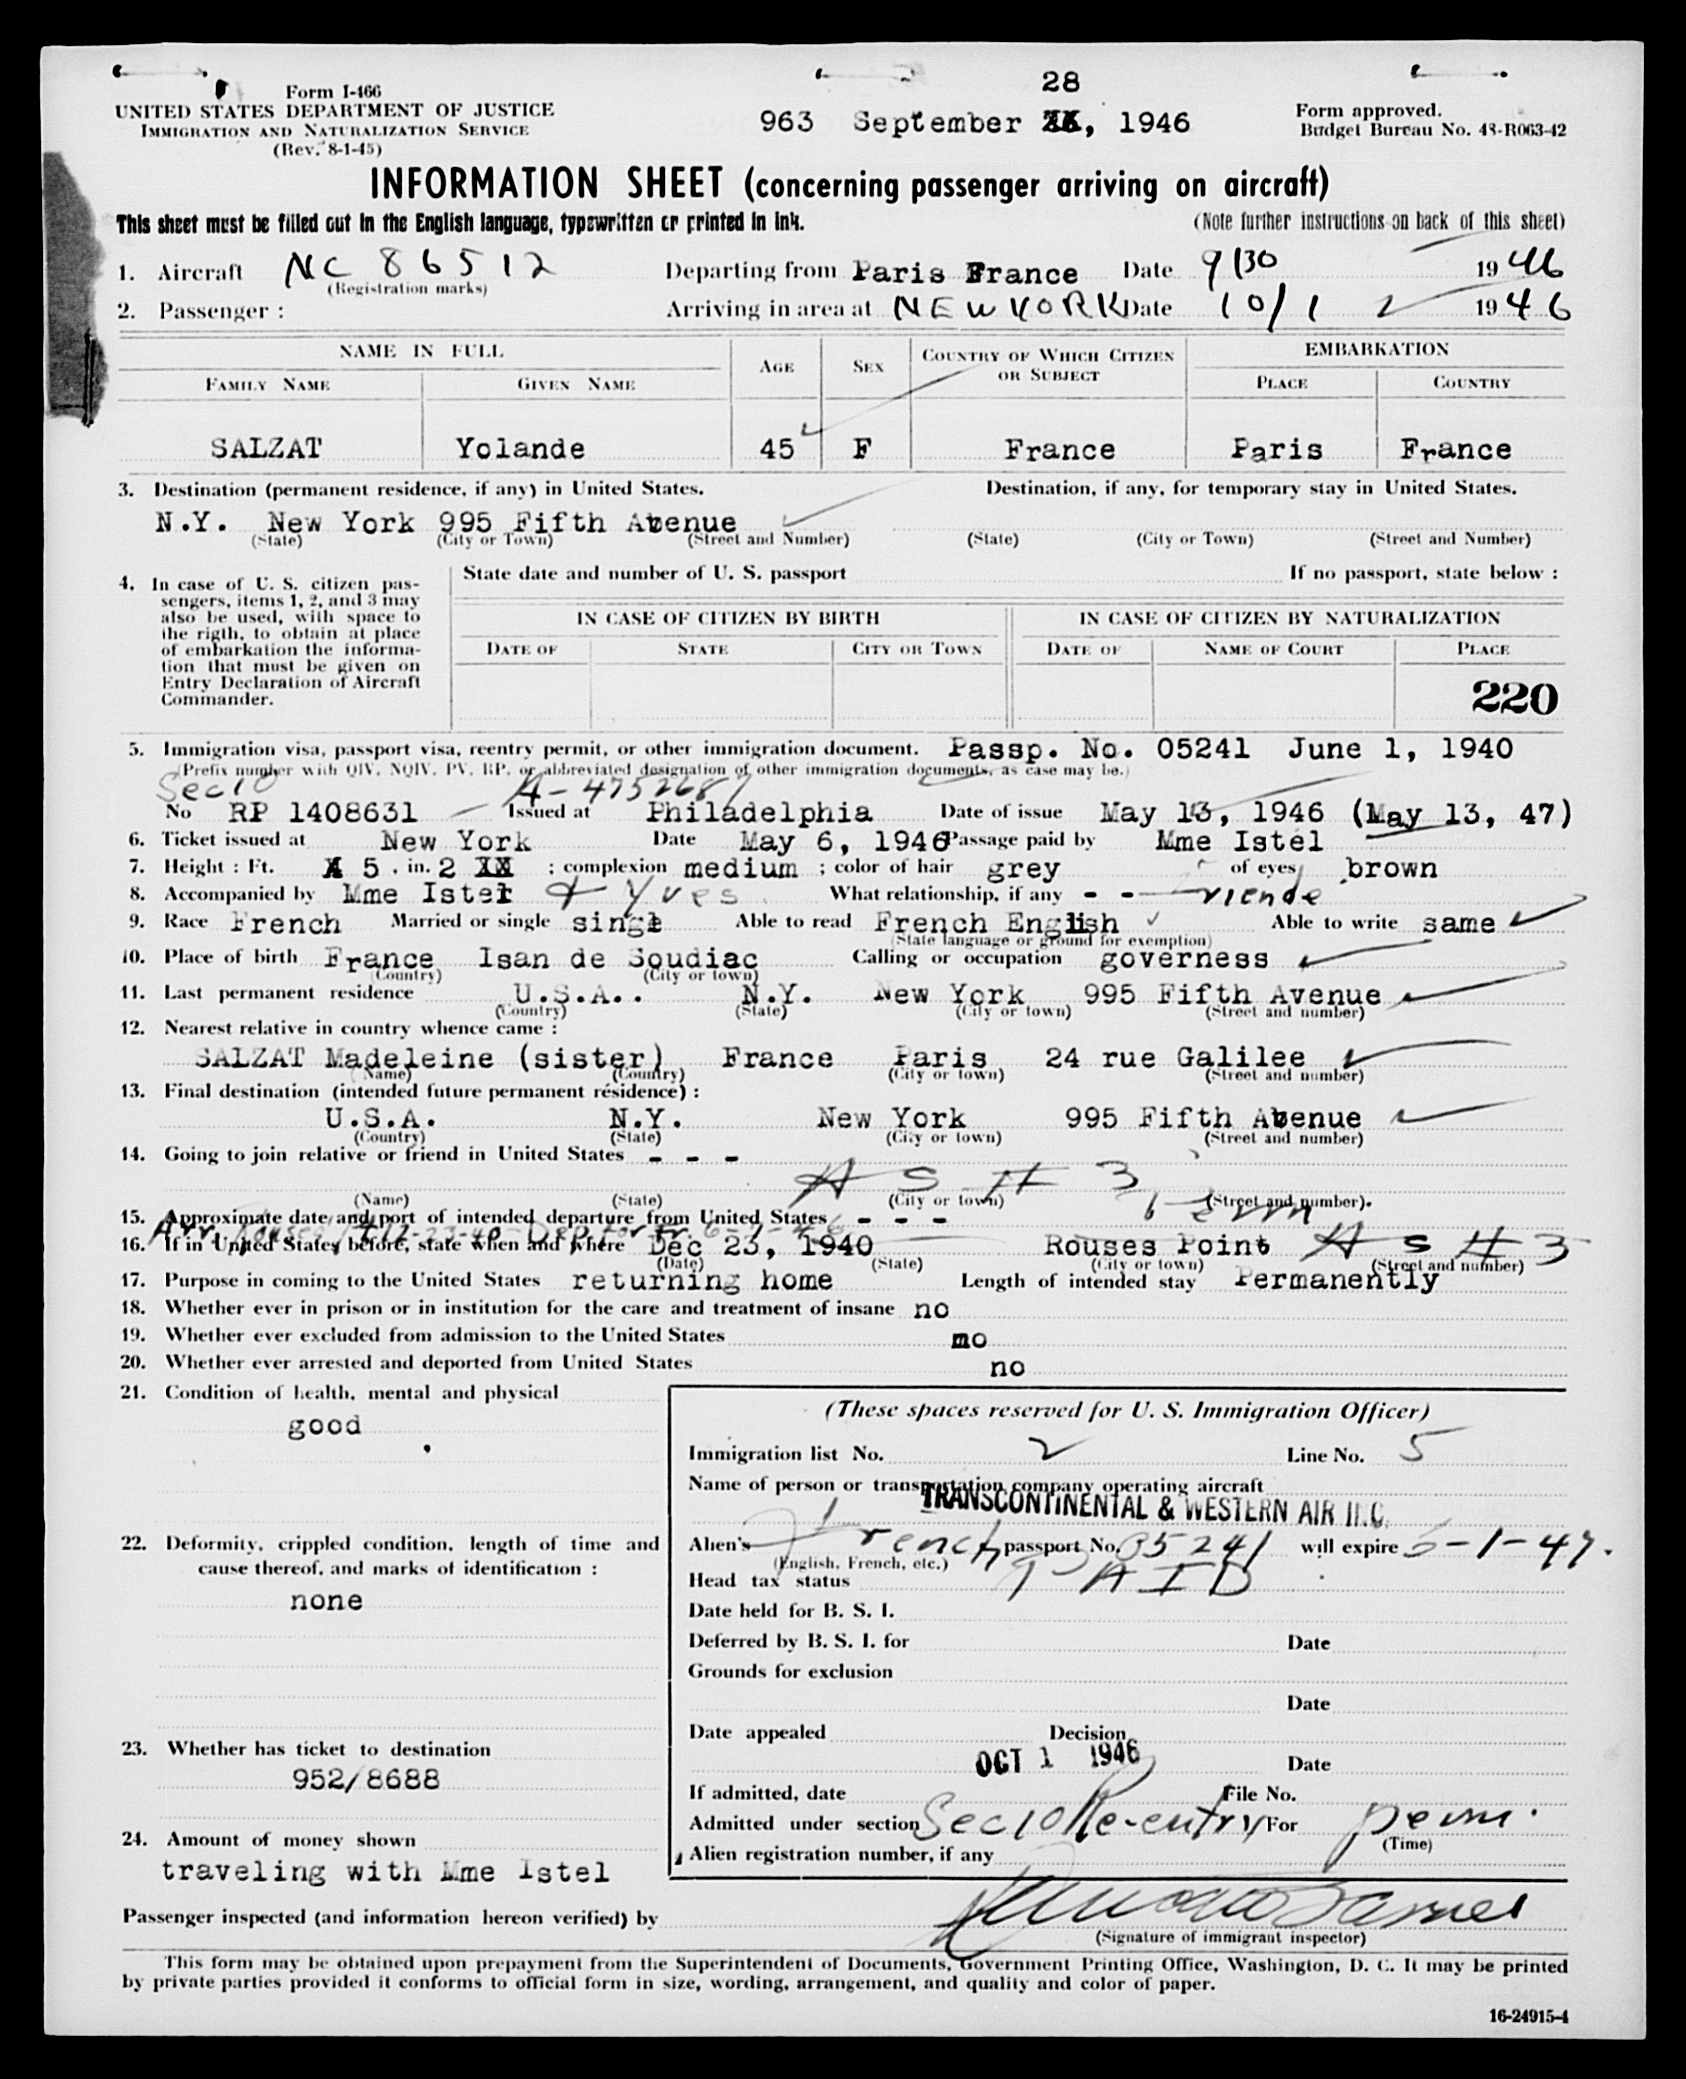 Form I-466
UNITED STATES DEPARTMENT OF JUSTICE
IMMIGRATION AND NATURALIZATION SERVICE
(Rev. 8-1-45)
28
963 September XX, 1946
Form approved.
Budget Bureau No. 43-R063-42
INFORMATION SHEET (concerning passenger arriving on aircraft)
This sheet must be filled out in the English language, typewritten or printed in ink.
(Note further instructions on back of this sheet)
1. Aircraft NC 86512 Departing from Paris France Date 9/30 1946
(Registration marks)
2. Passenger : Arriving in area at NEW YORK Date 10/1 1946
NAME IN FULL AGE SEX COUNTRY OF WHICH CITIZEN OR SUBJECT EMBARKATION
FAMILY NAME GIVEN NAME PLACE COUNTRY
SALZAT Yolande 45 F France Paris France
3. Destination (permanent residence, if any) in United States. Destination, if any, for temporary stay in United States.
N.Y. New York 995 Fifth Avenue
(State) (City or Town) (Street and Number) (State) (City or Town) (Street and Number)
4. In case of U. S. citizen pas-
sengers, items 1, 2, and 3 may
also be used, with space to
the rigth, to obtain at place
of embarkation the informa-
tion that must be given on
Entry Declaration of Aircraft
Commander.
State date and number of U. S. passport If no passport, state below :
IN CASE OF CITIZEN BY BIRTH IN CASE OF CITIZEN BY NATURALIZATION
DATE OF STATE CITY OR TOWN DATE OF NAME OF COURT PLACE
220
5. Immigration visa, passport visa, reentry permit, or other immigration document. Passp. No. 05241 June 1, 1940
(Prefix number with QIV, NQIV, PV, RP, or abbreviated designation of other immigration documents, as case may be.)
Sec 10 A-4752687
No RP 1408631 Issued at Philadelphia Date of issue May 13, 1946 (May 13, 47)
6. Ticket issued at New York Date May 6, 1946 Passage paid by Mme Istel
7. Height : Ft. X 5 . in. 2 XX ; complexion medium ; color of hair grey of eyes brown
8. Accompanied by Mme Istel + Yves What relationship, if any - - friends
9. Race French Married or single single Able to read French English Able to write same
(State language or ground for exemption)
10. Place of birth France Isan de Soudiac Calling or occupation governess
(Country) (City or town)
11. Last permanent residence U.S.A.. N.Y. New York 995 Fifth Avenue
(Country) (State) (City or town) (Street and number)
12. Nearest relative in country whence came :
SALZAT Madeleine (sister) France Paris 24 rue Galilee
(Name) (Country) (City or town) (Street and number)
13. Final destination (intended future permanent résidence) :
U.S.A. N.Y. New York 995 Fifth Avenue
(Country) (State) (City or town) (Street and number)
14. Going to join relative or friend in United States - - -
A S H 3
(Name) (State) (City or town) (Street and number).
15. Approximate date and port of intended departure from United States - - -
16. If in United States before, state when and where Dec 23, 1940 Rouses Point A S H 3
(Date) (State) (City or town) (Street and number)
17. Purpose in coming to the United States returning home Length of intended stay Permanently
18. Whether ever in prison or in institution for the care and treatment of insane no
19. Whether ever excluded from admission to the United States no
20. Whether ever arrested and deported from United States no
21. Condition of health, mental and physical
good
22. Deformity, crippled condition, length of time and
cause thereof, and marks of identification :
none
23. Whether has ticket to destination
952/8688
24. Amount of money shown
traveling with Mme Istel
(These spaces reserved for U. S. Immigration Officer)
Immigration list No. 2 Line No. 5
Name of person or transportation company operating aircraft
TRANSCONTINENTAL & WESTERN AIR INC.
Alien's French passport No. 05241 will expire 6-1-47.
(English, French, etc.)
Head tax status PAID
Date held for B. S. I.
Deferred by B. S. I. for Date
Grounds for exclusion
Date
Date appealed Decision
OCT 1 1946 Date
If admitted, date File No.
Admitted under section Sec 10 Re-entry For perm.
(Time)
Alien registration number, if any
Passenger inspected (and information hereon verified) by
(Signature of immigrant inspector)
This form may be obtained upon prepayment from the Superintendent of Documents, Government Printing Office, Washington, D. C. It may be printed
by private parties provided it conforms to official form in size, wording, arrangement, and quality and color of paper.
16-24915-4